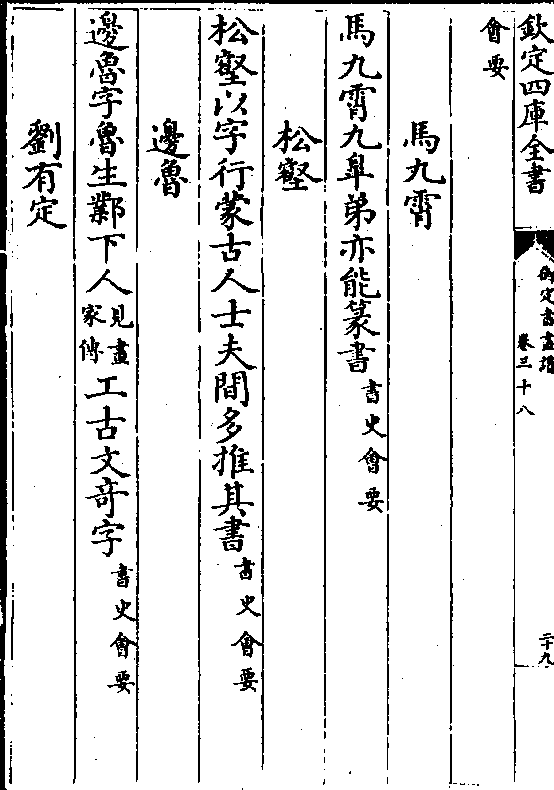 欽定四庫全書
御定書畫譜
卷三十八
二十九
會要
馬九霄
馬九霄九臯弟亦能篆書書史會要
松壑
松壑以字行蒙古人士夫間多推其書書史會要
邊魯
邊魯字魯生鄴下人見畫家傳工古文奇字書史會要
劉有定